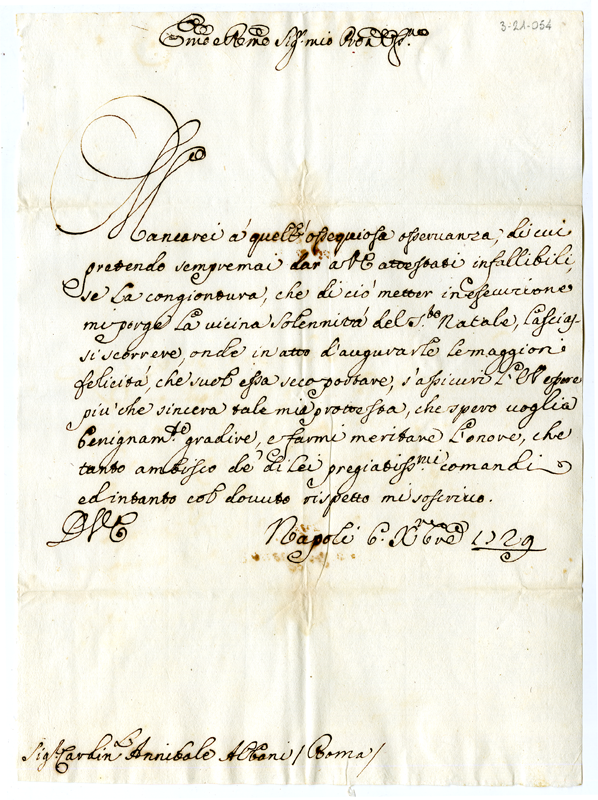 3-21-054
Emo e Rmo Sigr. mio Pron Colmo
Mancarei a' quell' ossequiosa osseruanza, di cui
pretendo sempremai dar a VE attestati infallibili,
se la congiontura, che di ciò metter in essecuzione
mi porge la uicina solennità del S.mo Natale, lascias-
si scorrere, onde in atto d'augurarle le maggiori
felicità, che suol essa seco portare, s'assicuri l'E V essere
più che sincera tale mia protesta, che spero uoglia
benignam.te gradire, e farmi meritare l'onore, che
tanto ambisco de' di lei pregiatiss.mi comandi
ed intanto col douuto rispetto mi soscriuo.
D V E
Napoli 6. Xbre 1729
Sigr. Cardin.l Annibale Albani / Roma /